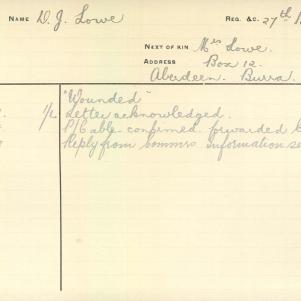 NAME D. J. Lowe REG. &C. 27th
NEXT OF KIN Mrs Lowe.
ADDRESS Box 12.
Aberdeen. Burra.
"Wounded"
1/2 Letter acknowledged.
P/Cable confirmed. forwarded
Reply from Commrs. Information